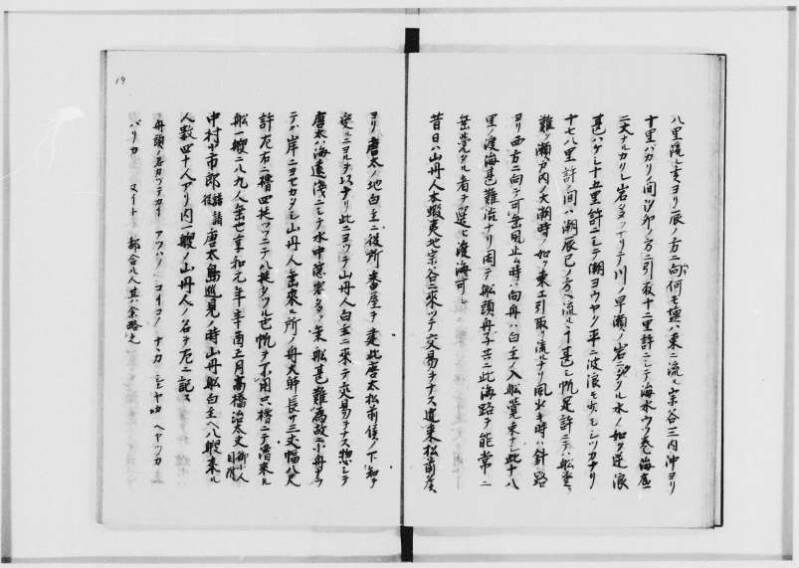 八里流レ夫ヨリ辰ノ方ニ向何モ塩ハ東ニ流レ宗谷三内沖ヨリ
十里ハカリノ間汐卯ノ方ニ引取十二里許ニシテ海水ウツ巻海底
二大ナルカクレ岩シヨフイリテ川ノ早瀬ノ岩ニクル水ノ如ク逆浪
甚ハケシ十五里許ニシテ潮ヨウヤク平ニ波浪モ少モシツカナリ
十七八里許ノ間ハ潮辰巳ノ方ヘ流ル丨甚シ帆足許ニテハ船
難シ瀬戸内ノ大潮時ノ如ク東エ引取リ流ルナリ風少キ時ハ針路
ヨリ西方ニ向テ可乗風止ム時ハ向舟ハ白主ノ入船覚束ナシ此十八
里ノ渡海甚難渋ナリ因テ船頭舟子共ニ此海路ヲ能常ニ
乗覚タル者ヲ選ヒ渡海可シ
昔日ハ山丹人本蝦夷地宗谷ニ来ツテ交易ヲナス近来松前矦
ヨリ唐太ノ地白主ニ役所番屋ヲ建此唐太松前侯ノ下知ヲ
受ルニヨルヲ以ナリ此ニヨツテ山丹人白主ニ来テ交易ヲナス惣シテ
唐太ハ海遠浅ニシテ水中深寄多ク乗船甚難為故ニ小舟ナラ
テハ岸ニヨセカタシ山丹人乗来ル所ノ舟大幹長サ三丈幅八尺
許左右ニ櫓四挺ツツニテ八挺タフル也帆ヲ不用只櫓ニテ漕来ル
船一艘ニ八九人乗也享和元年辛酉五月高橋治太夫御小人目附
中村小市郎御普請役唐太島巡見ノ時山丹船白主ヘ八艘来ル
人数四十人アリ内一艘ノ山丹人ノ名ヲ左ニ記ス
舟頭ノ名カツテカイ アフハノ コイコノ ナンカ シヤ ヘヤツカ
バリカ ヌイト 都合八人其ハ余略之
19